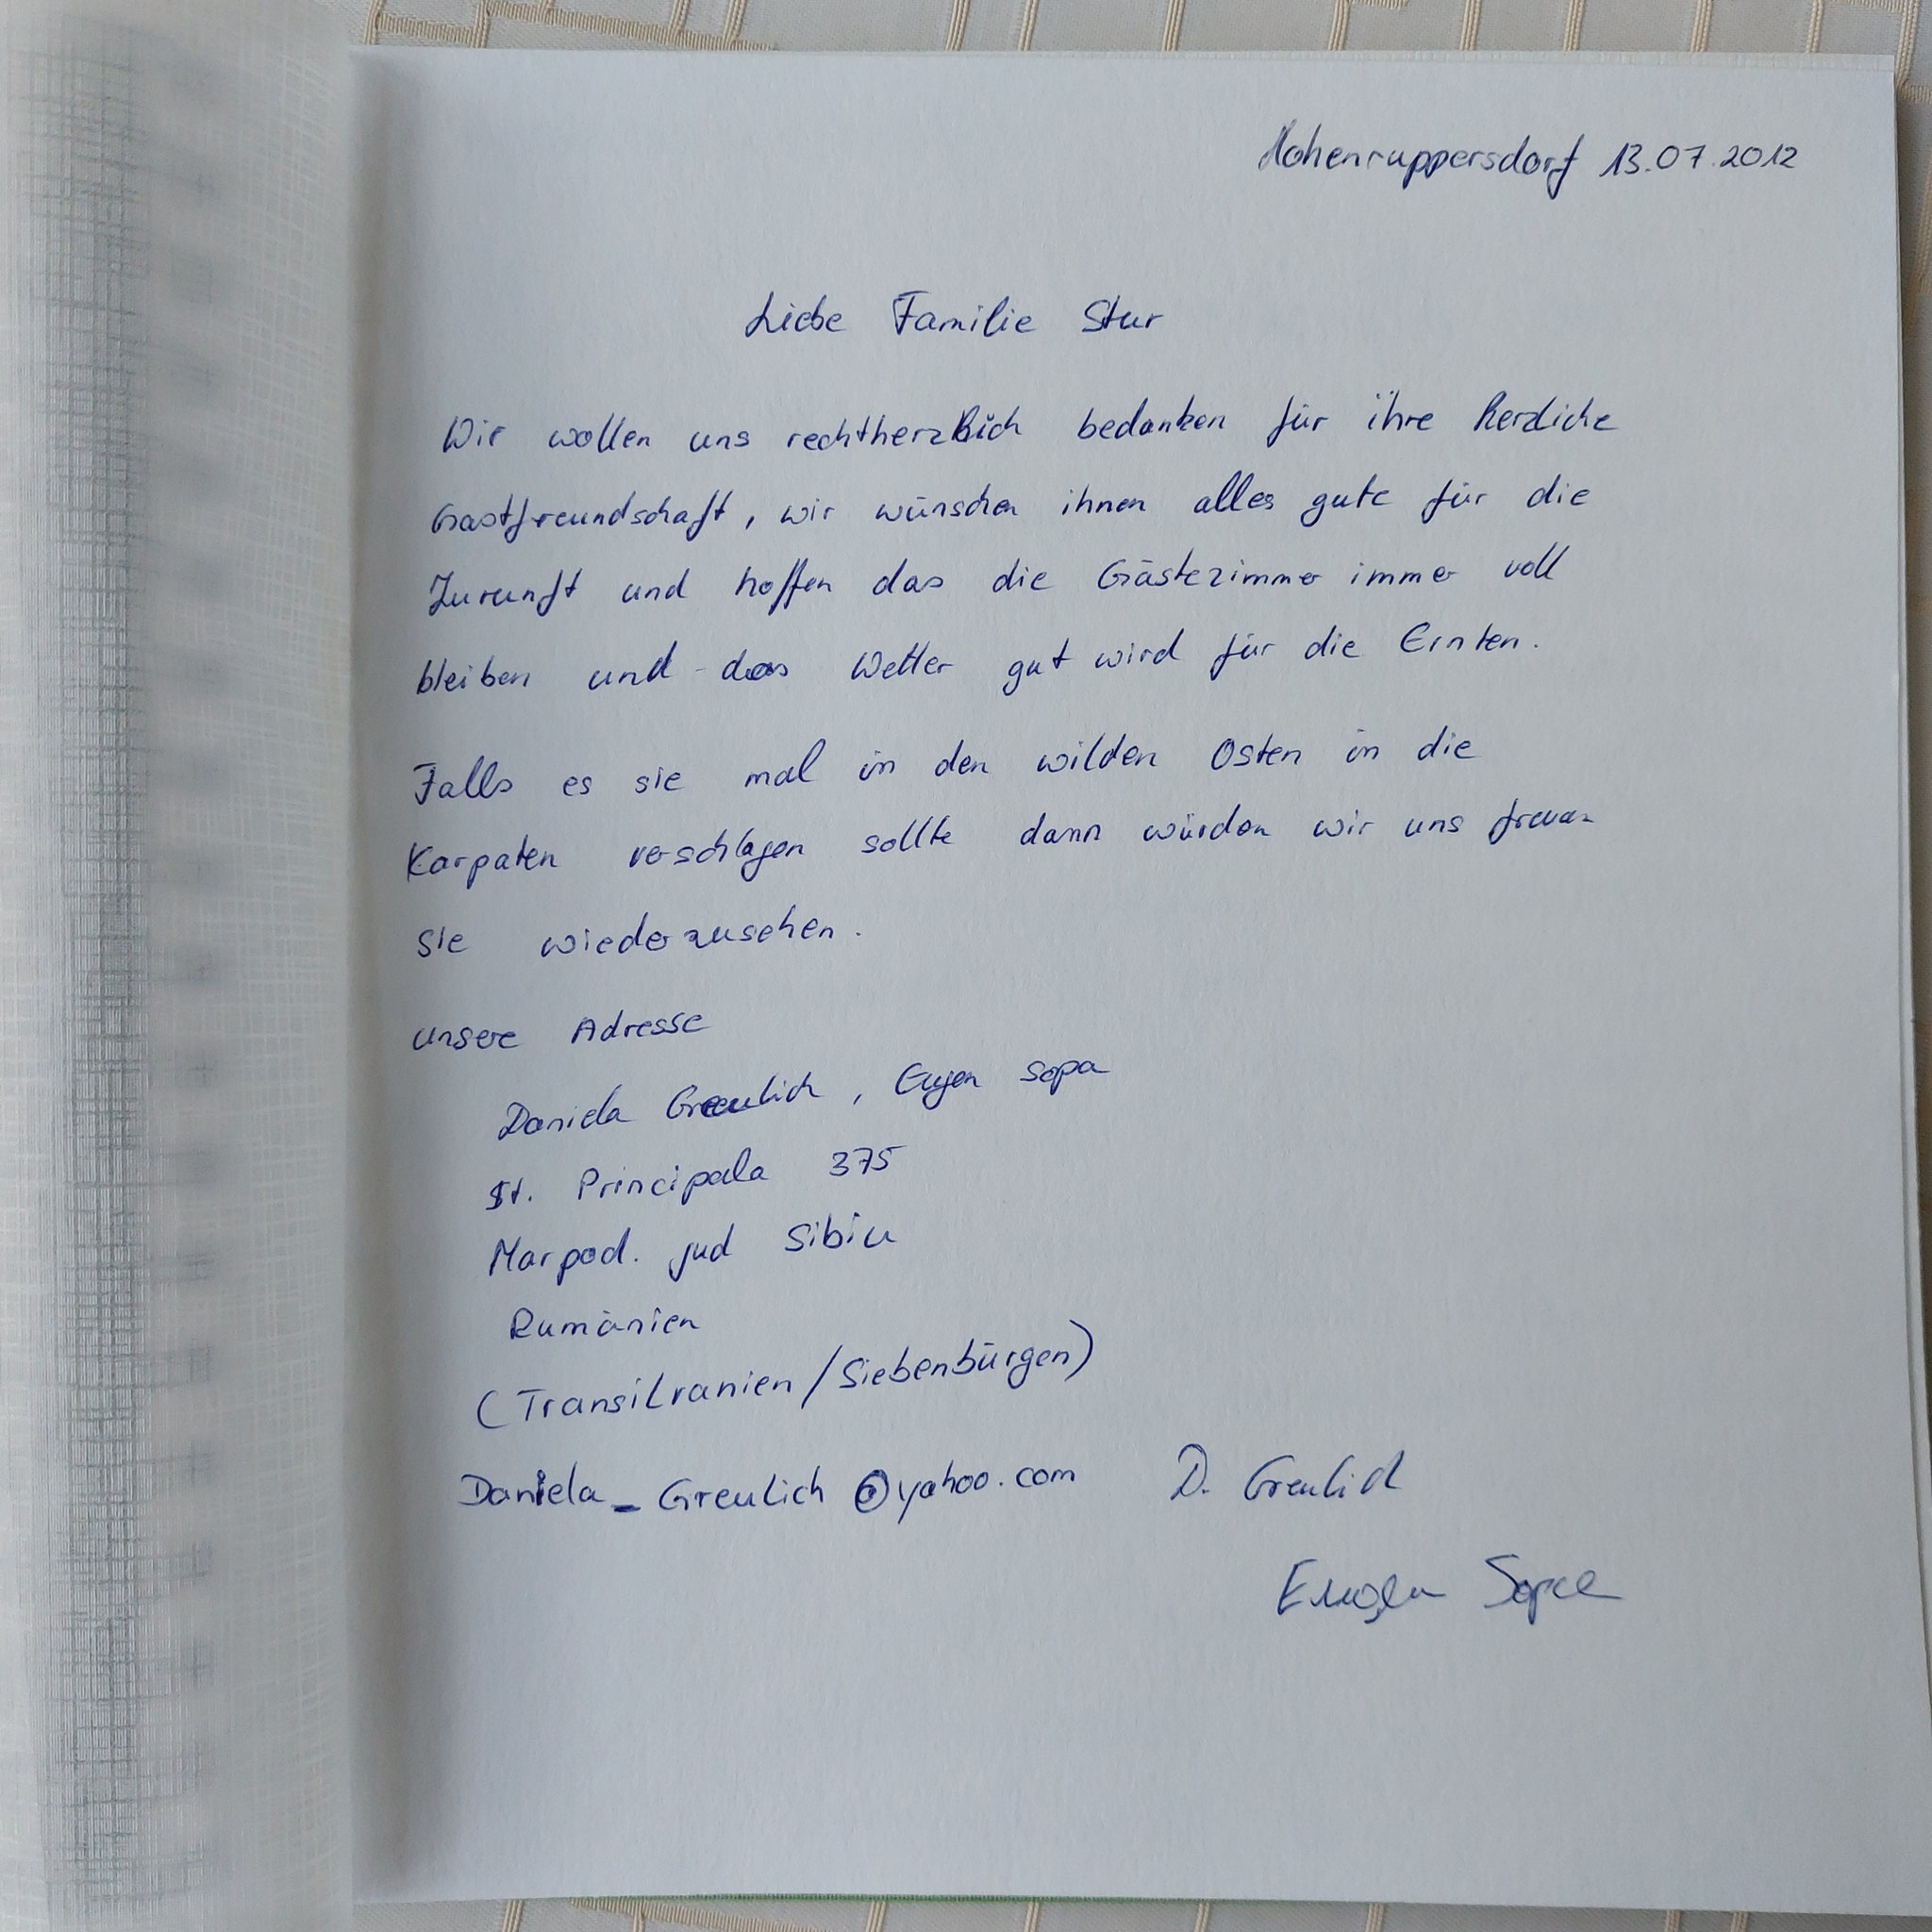 Hohenruppersdorf 13.07.2012
Liebe Familie Stur
Wir wollen uns rechtherzlich bedanken für ihre herzliche
Gastfreundschaft, wir wünschen ihnen alles gute für die
Zukunft und hoffen das die Gästezimmer immer voll
bleiben und das Wetter gut wird für die Ernten.
Falls es sie mal in den wilden Osten in die
Karpaten verschlagen sollte dann würden wir uns freuen
sie wiederzusehen.
unsere Adresse
Daniela Greulich, Eugen Sopa
St. Principala 375
Marpod. jud Sibiu
Rumänien
(Transilvanien/Siebenbürgen)
Daniela_Greulich@yahoo.com D. Greulich
Eugen Sopa